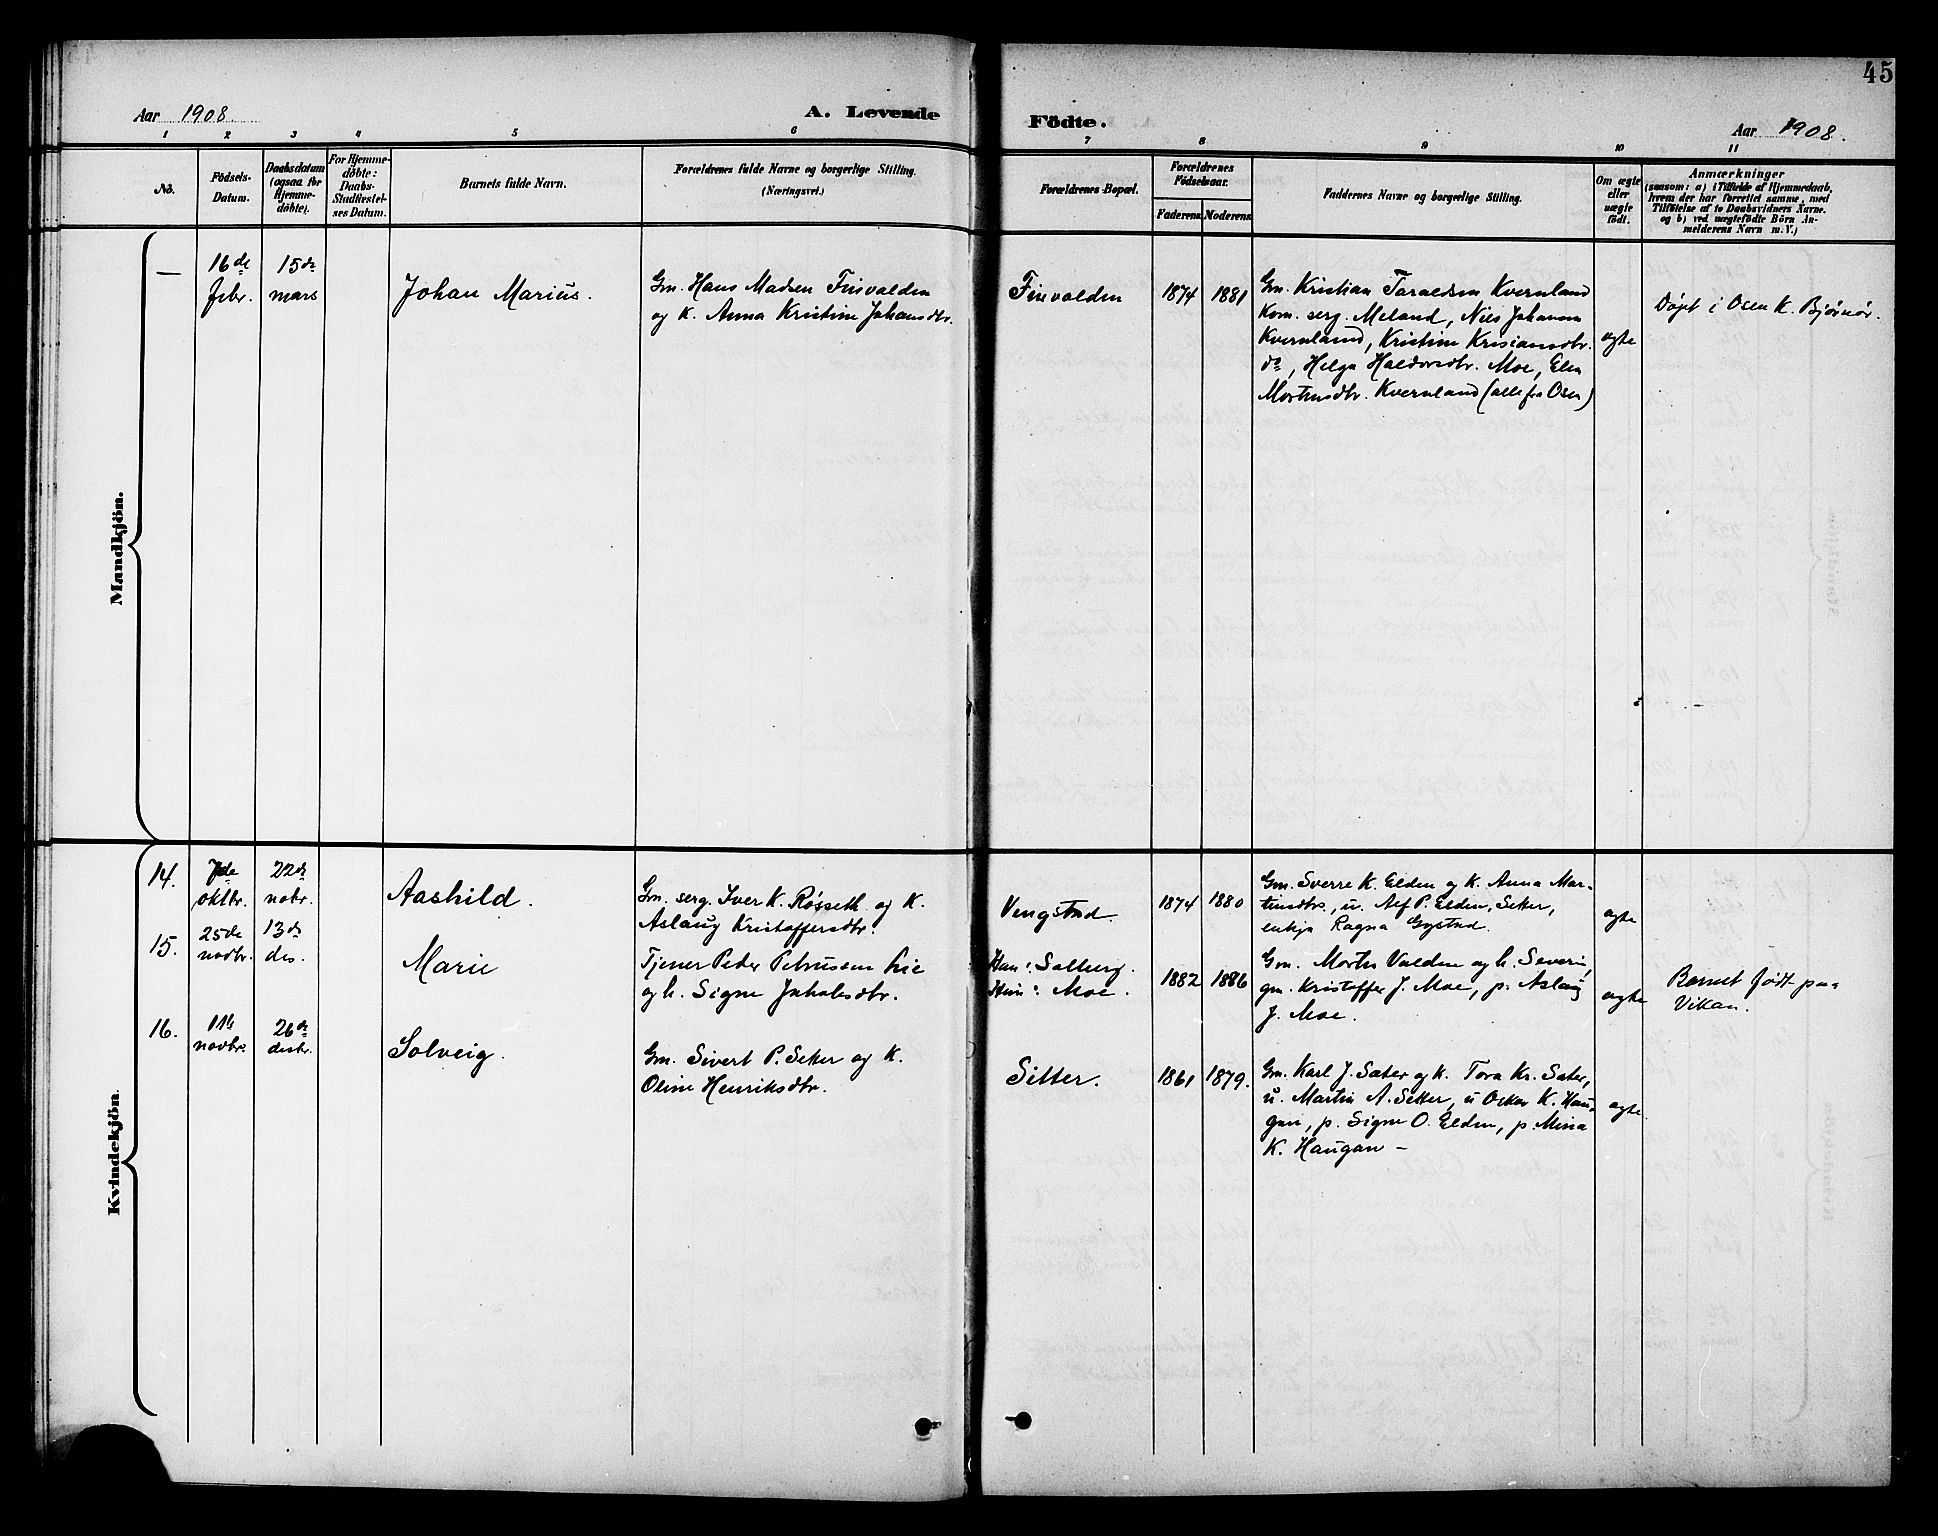 45
Aar 1908.
A. Levende
Födte.
Aar 1908.
1 2 3 4 5 6 7 8 9 10 11
No.
Födsels-
Datum.
Daabsdatum
(ogsaa for
Hjemme-
döbte).
For Hjemme-
döbte:
Daabs-
Stadfæstel-
ses Datum.
Barnets fulde Navn.
Forældrenes fulde Navne og borgerlige Stilling.
(Næringsvei.)
Forældrenes Bopæl.
Forældrenes
Födselsaar.
Faderens
Moderens
Faddernes Navne og borgerlige Stilling.
Om ægte
eller
uægte
født.
Anmærkninger
(saasom: a) i Tilfælde af Hjemmedaab,
hvem der har forrettet samme, med
Tilföielse af to Daabsvidners Navne.
og b) ved uægtefödte Börn An-
melderens Navn m. V.)
Mandkjön.
—
16de
febr.
15de
mars
Johan Marius.
Gm. Hans Madsen Finvalden
og K. Anna Kristine Johansdtr.
Finvalden
1874
1881
Gm. Kristian Taraldsen Kvernland
Kom. serg. Meland, Nils Johansen
Kvernland, Kristine Krisiansdtr.
do, Helga Haldorsdtr. Moe, Elen
Mortensdtr. Kvernland (alle fra Osen)
egte
Døpt i Osen K. Bjørnør.
Kvindekjön.
14.
7de
oktbr.
22de
nobr.
Aashild.
Gm. serg. Iver K. Røsseth og K.
Aslaug Kristoffersdtr.
Vengstad
1874
1880
Gm. Sverre K. Elden og K. Anna Mar-
tinsdtr., u. Alf P. Elden, Setter,
enkja Ragna Gystad.
egte
15.
25de
novbr.
13de
des.
Marie
Tjener Peder Petrussen Lie
og h. Signe Jakobsdtr.
Han: Salberg.
Hun: Moe.
1882
1886
Gm. Morten Valden og h. Severin,
gm. Kristoffer J. Moe, p. Aslaug
J. Moe.
egte
Barnet født paa
Vikan.
16.
11te
novbr.
26de
desbr.
Solveig.
Gm. Sivert P. Setter og K.
Oline Henriksdtr.
Sitter.
1861
1879.
Gm. Karl J. Sæter og K. Tora Kr. Sæter,
u. Martin A. Setter, u Oskar K. Hau-
gan, p. Signe O. Elden, p. Mina
K. Haugan –
egte.